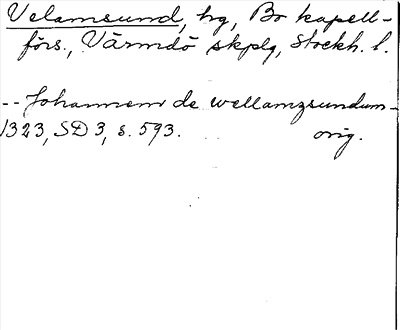 Velamsund, hg, Bo kapell-
förs., Värmdö skplg, Stockh. l.
-- Johannem de wellamzsundum -
1323, SD 3, s. 593. orig.